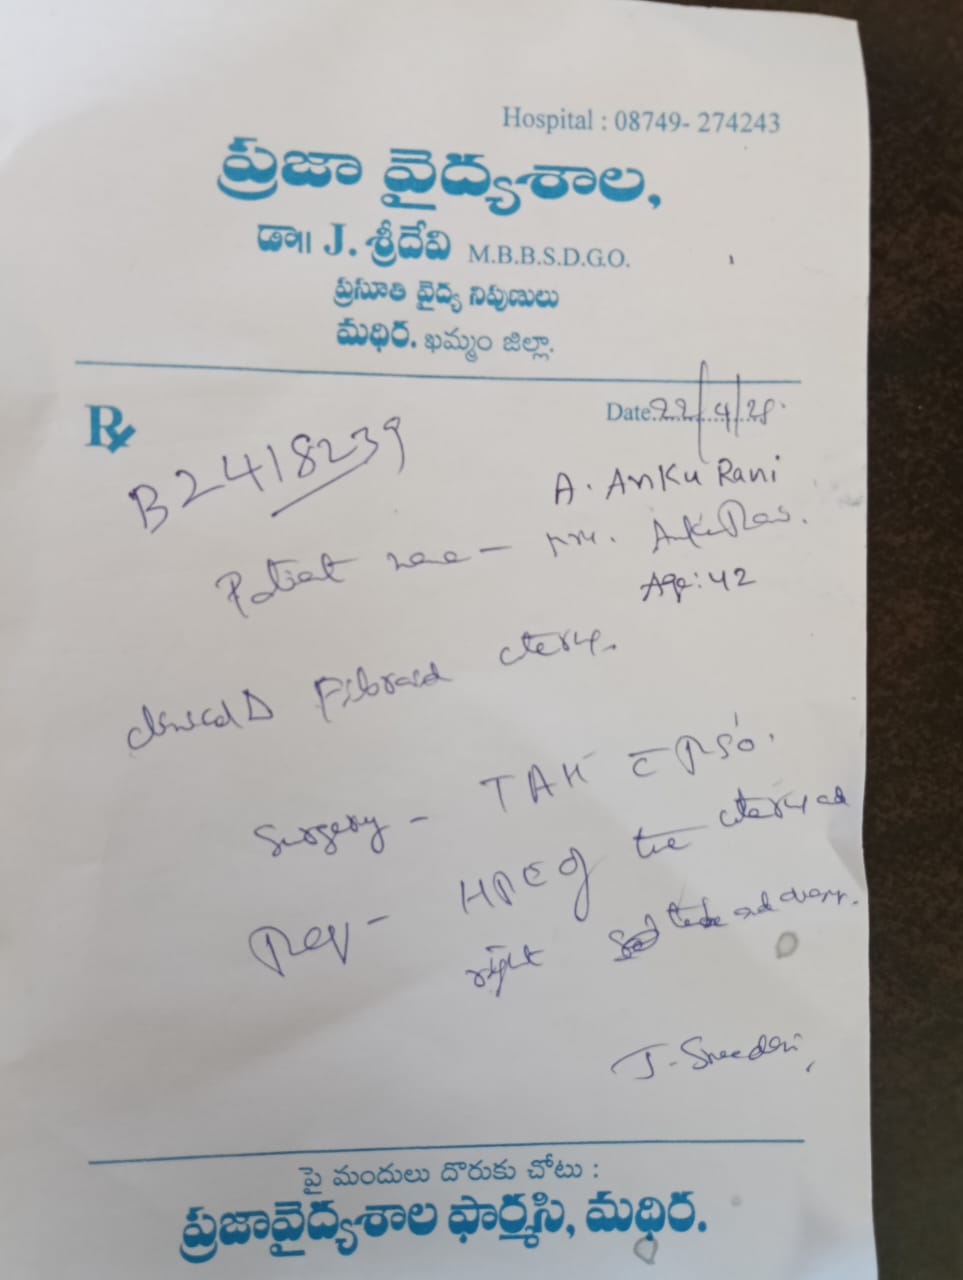 Hospital : 08749- 274243
ప్రజా వైద్యశాల,
డా॥ J. శ్రీదేవి M.B.B.S.D.G.O.
ప్రసూతి వైద్య నిపుణులు
మధిర. ఖమ్మం జిల్లా.
Rx
Date.22/4/25.
B2418239
A. Anku Rani
Patient name -
Age: 42
clinical Δ Fibroid uterus.
Surgery - TAH c̄ RSO.
Req - HPE of the uterus and
right tube and ovary.
J. Sreedevi,
పై మందులు దొరుకు చోటు :
ప్రజావైద్యశాల ఫార్మసి, మధిర.